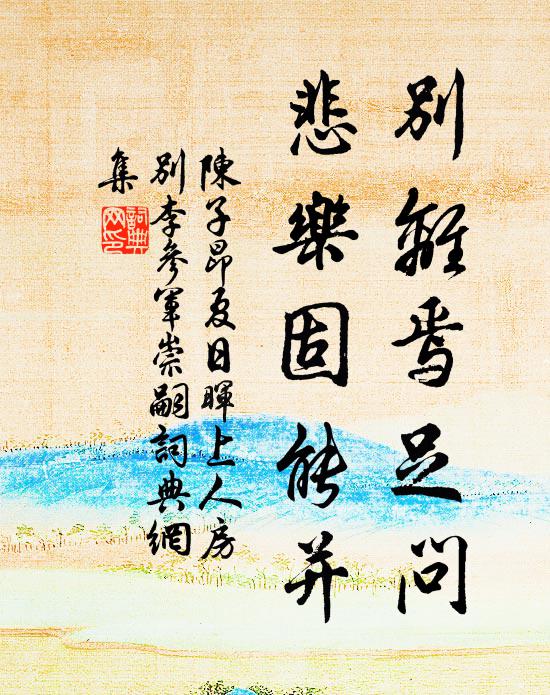 別離焉足問
悲樂固能并
陳子昂夏日暉上人房
別李參軍崇嗣詞典網
集
詞典
网印